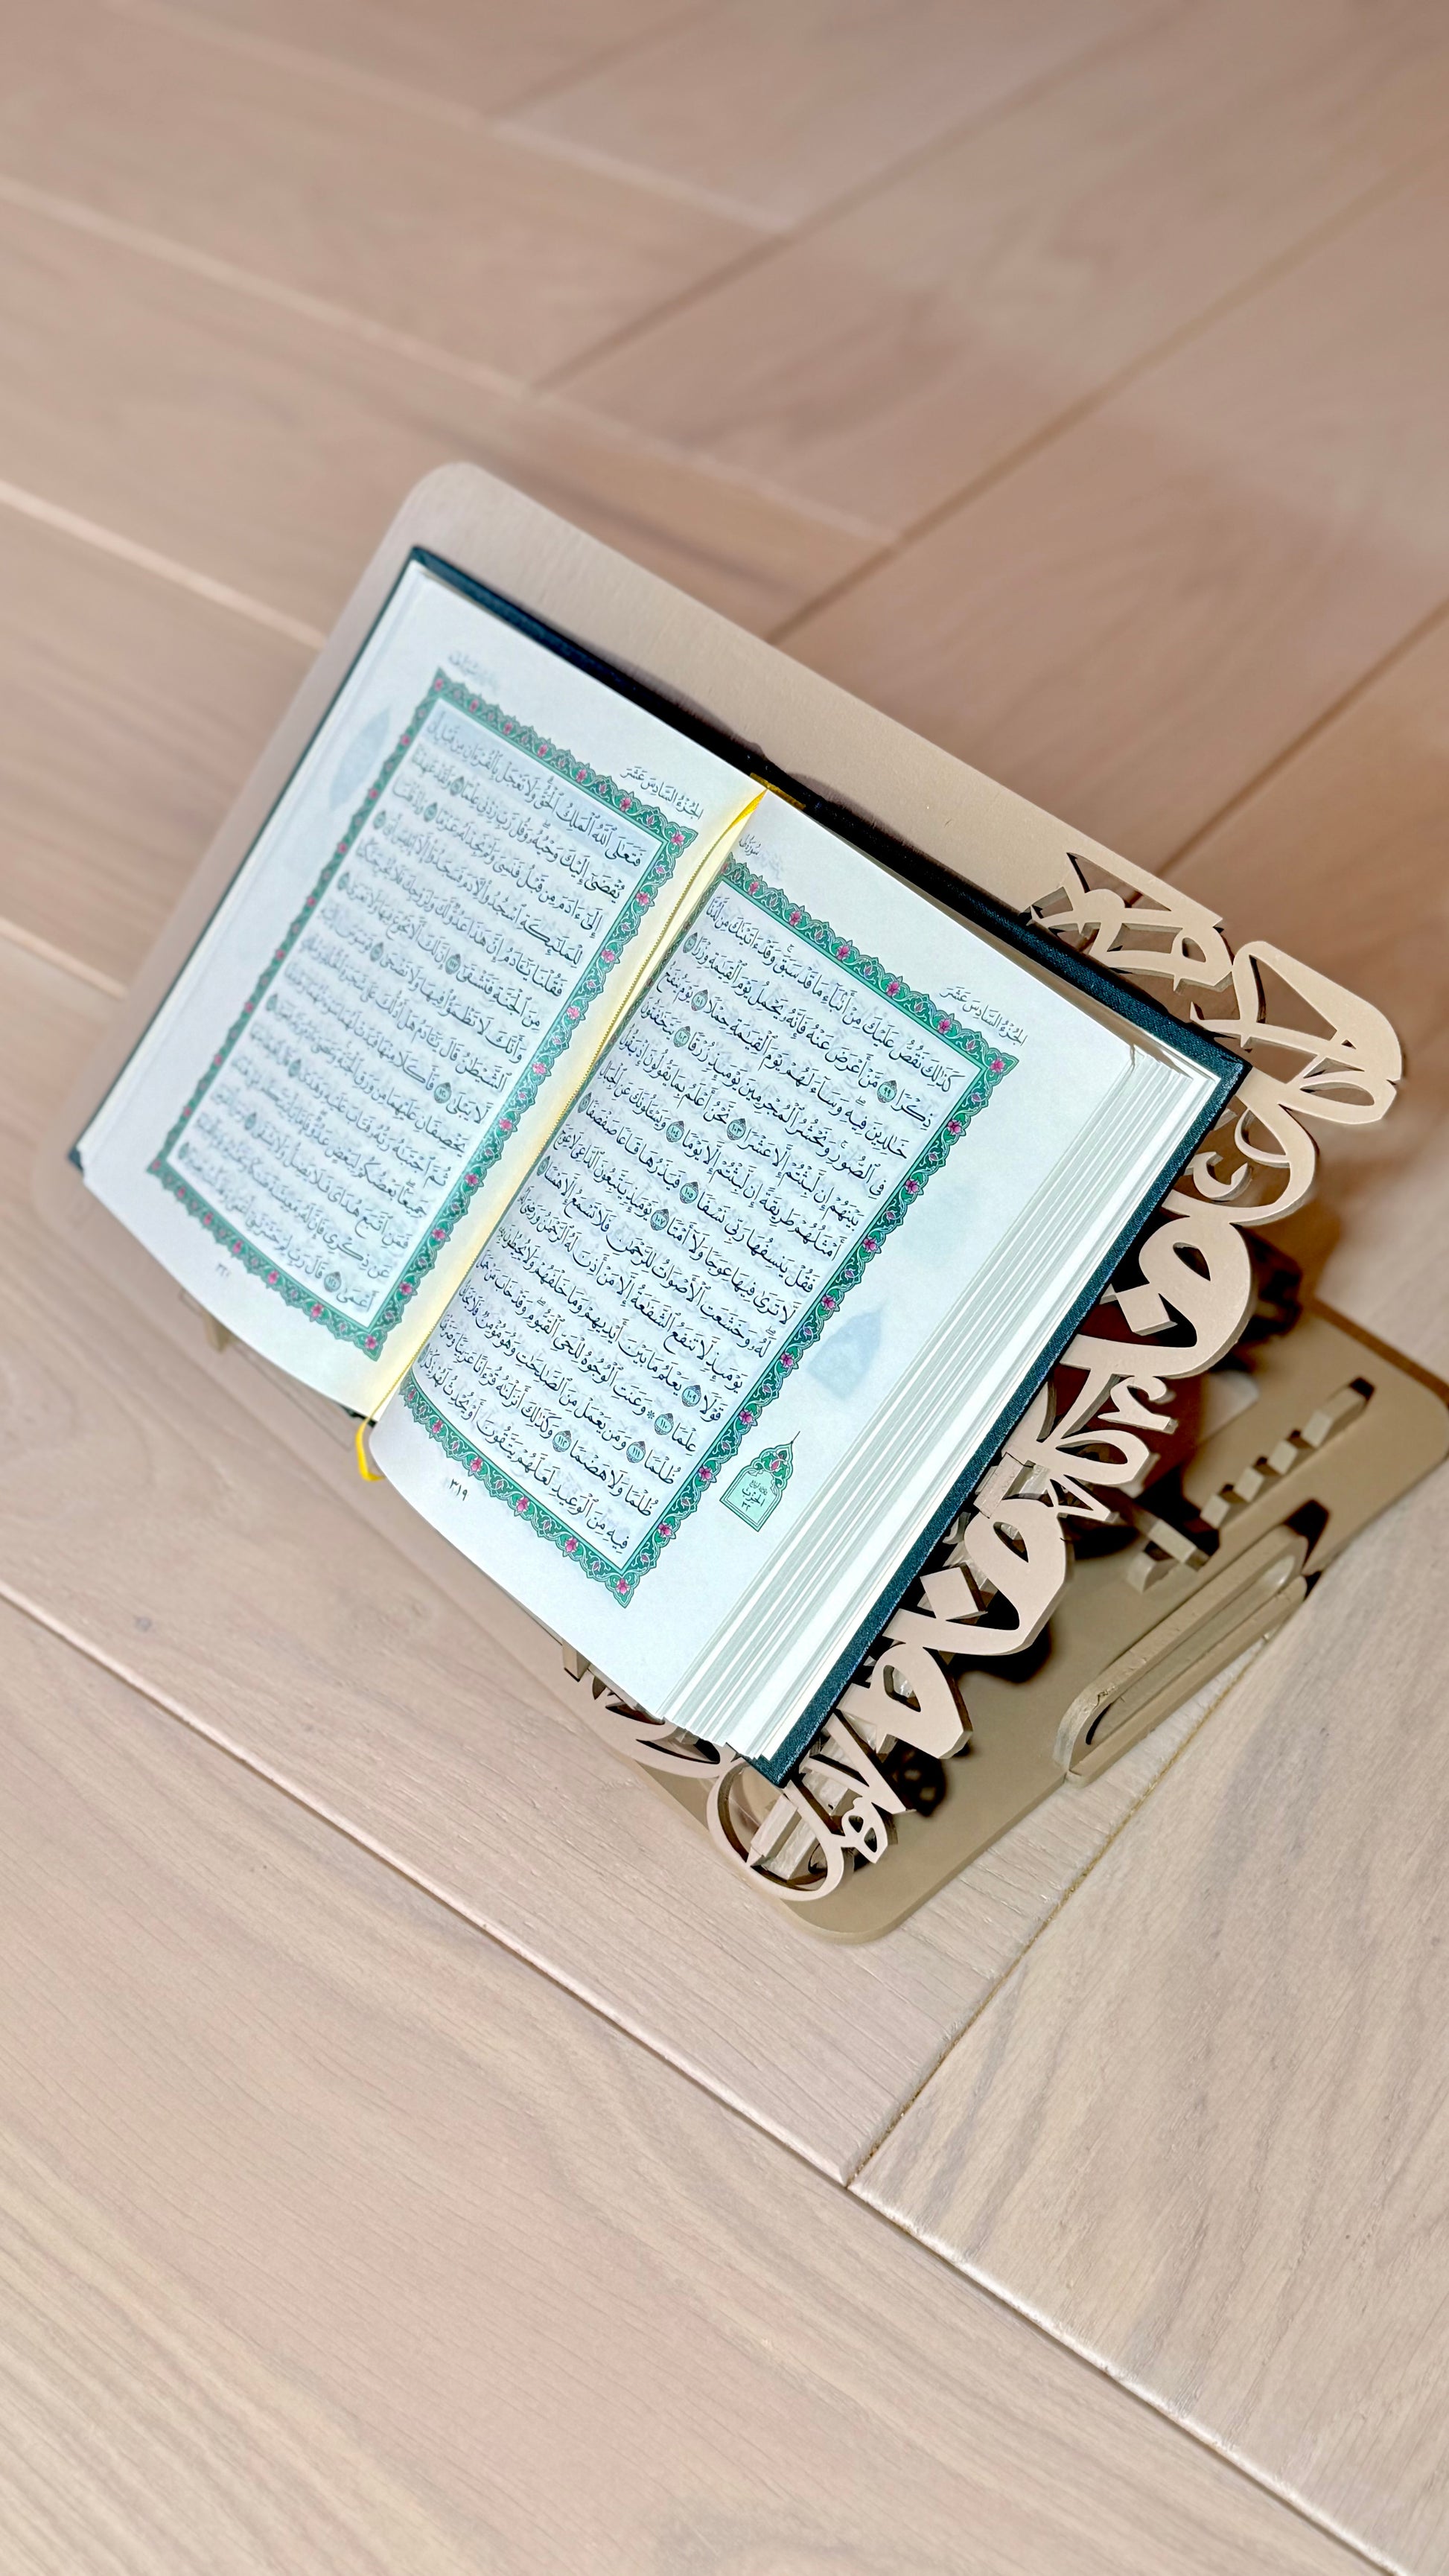 الجُزْءُ السَّادِسَ عَشَرَ
كَذَٰلِكَ نَقُصُّ عَلَيْكَ مِنْ أَنۢبَآءِ مَا قَدْ سَبَقَۚ وَقَدْ ءَاتَيْنَٰكَ مِن لَّدُنَّا
ذِكْرًا ٩٩ مَّنْ أَعْرَضَ عَنْهُ فَإِنَّهُۥ يَحْمِلُ يَوْمَ ٱلْقِيَٰمَةِ وِزْرًا ١٠٠
خَٰلِدِينَ فِيهِۖ وَسَآءَ لَهُمْ يَوْمَ ٱلْقِيَٰمَةِ حِمْلًا ١٠١ يَوْمَ يُنفَخُ
فِى ٱلصُّورِۚ وَنَحْشُرُ ٱلْمُجْرِمِينَ يَوْمَئِذٍ زُرْقًا ١٠٢ يَتَخَٰفَتُونَ
بَيْنَهُمْ إِن لَّبِثْتُمْ إِلَّا عَشْرًا ١٠٣ نَّحْنُ أَعْلَمُ بِمَا يَقُولُونَ إِذْ يَقُولُ
أَمْثَلُهُمْ طَرِيقَةً إِن لَّبِثْتُمْ إِلَّا يَوْمًا ١٠٤ وَيَسْـَٔلُونَكَ عَنِ ٱلْجِبَالِ
فَقُلْ يَنسِفُهَا رَبِّى نَسْفًا ١٠٥ فَيَذَرُهَا قَاعًا صَفْصَفًا ١٠٦
لَّا تَرَىٰ فِيهَا عِوَجًا وَلَآ أَمْتًا ١٠٧ يَوْمَئِذٍ يَتَّبِعُونَ ٱلدَّاعِىَ لَا عِوَجَ
لَهُۥۖ وَخَشَعَتِ ٱلْأَصْوَاتُ لِلرَّحْمَٰنِ فَلَا تَسْمَعُ إِلَّا هَمْسًا ١٠٨
يَوْمَئِذٍ لَّا تَنفَعُ ٱلشَّفَٰعَةُ إِلَّا مَنْ أَذِنَ لَهُ ٱلرَّحْمَٰنُ وَرَضِىَ لَهُۥ
قَوْلًا ١٠٩ يَعْلَمُ مَا بَيْنَ أَيْدِيهِمْ وَمَا خَلْفَهُمْ وَلَا يُحِيطُونَ بِهِۦ
عِلْمًا ١١٠ ۞ وَعَنَتِ ٱلْوُجُوهُ لِلْحَىِّ ٱلْقَيُّومِۖ وَقَدْ خَابَ مَنْ حَمَلَ
ظُلْمًا ١١١ وَمَن يَعْمَلْ مِنَ ٱلصَّٰلِحَٰتِ وَهُوَ مُؤْمِنٌ فَلَا يَخَافُ
ظُلْمًا وَلَا هَضْمًا ١١٢ وَكَذَٰلِكَ أَنزَلْنَٰهُ قُرْءَانًا عَرَبِيًّا وَصَرَّفْنَا
فِيهِ مِنَ ٱلْوَعِيدِ لَعَلَّهُمْ يَتَّقُونَ أَوْ يُحْدِثُ لَهُمْ ذِكْرًا
الحِزْب
٣٢
٣١٩
الجُزْءُ السَّادِسَ عَشَرَ
فَتَعَٰلَى ٱللَّهُ ٱلْمَلِكُ ٱلْحَقُّۗ وَلَا تَعْجَلْ بِٱلْقُرْءَانِ مِن قَبْلِ أَن
يُقْضَىٰٓ إِلَيْكَ وَحْيُهُۥۖ وَقُل رَّبِّ زِدْنِى عِلْمًا ١١٤ وَلَقَدْ عَهِدْنَآ
إِلَىٰٓ ءَادَمَ مِن قَبْلُ فَنَسِىَ وَلَمْ نَجِدْ لَهُۥ عَزْمًا ١١٥ وَإِذْ قُلْنَا
لِلْمَلَٰٓئِكَةِ ٱسْجُدُوا۟ لِءَادَمَ فَسَجَدُوٓا۟ إِلَّآ إِبْلِيسَ أَبَىٰ ١١٦
فَقُلْنَا يَٰٓـَٔادَمُ إِنَّ هَٰذَا عَدُوٌّ لَّكَ وَلِزَوْجِكَ فَلَا يُخْرِجَنَّكُمَا
مِنَ ٱلْجَنَّةِ فَتَشْقَىٰٓ ١١٧ إِنَّ لَكَ أَلَّا تَجُوعَ فِيهَا وَلَا تَعْرَىٰ ١١٨
وَأَنَّكَ لَا تَظْمَؤُا۟ فِيهَا وَلَا تَضْحَىٰ ١١٩ فَوَسْوَسَ إِلَيْهِ
ٱلشَّيْطَٰنُ قَالَ يَٰٓـَٔادَمُ هَلْ أَدُلُّكَ عَلَىٰ شَجَرَةِ ٱلْخُلْدِ وَمُلْكٍ
لَّا يَبْلَىٰ ١٢٠ فَأَكَلَا مِنْهَا فَبَدَتْ لَهُمَا سَوْءَٰتُهُمَا وَطَفِقَا
يَخْصِفَانِ عَلَيْهِمَا مِن وَرَقِ ٱلْجَنَّةِۚ وَعَصَىٰٓ ءَادَمُ رَبَّهُۥ فَغَوَىٰ ١٢١
ثُمَّ ٱجْتَبَٰهُ رَبُّهُۥ فَتَابَ عَلَيْهِ وَهَدَىٰ ١٢٢ قَالَ ٱهْبِطَا مِنْهَا
جَمِيعًۢاۖ بَعْضُكُمْ لِبَعْضٍ عَدُوٌّۖ فَإِمَّا يَأْتِيَنَّكُم مِّنِّى هُدًى
فَمَنِ ٱتَّبَعَ هُدَاىَ فَلَا يَضِلُّ وَلَا يَشْقَىٰ ١٢٣ وَمَنْ أَعْرَضَ
عَن ذِكْرِى فَإِنَّ لَهُۥ مَعِيشَةً ضَنكًا وَنَحْشُرُهُۥ يَوْمَ ٱلْقِيَٰمَةِ
أَعْمَىٰ ١٢٤ قَالَ رَبِّ لِمَ حَشَرْتَنِىٓ أَعْمَىٰ